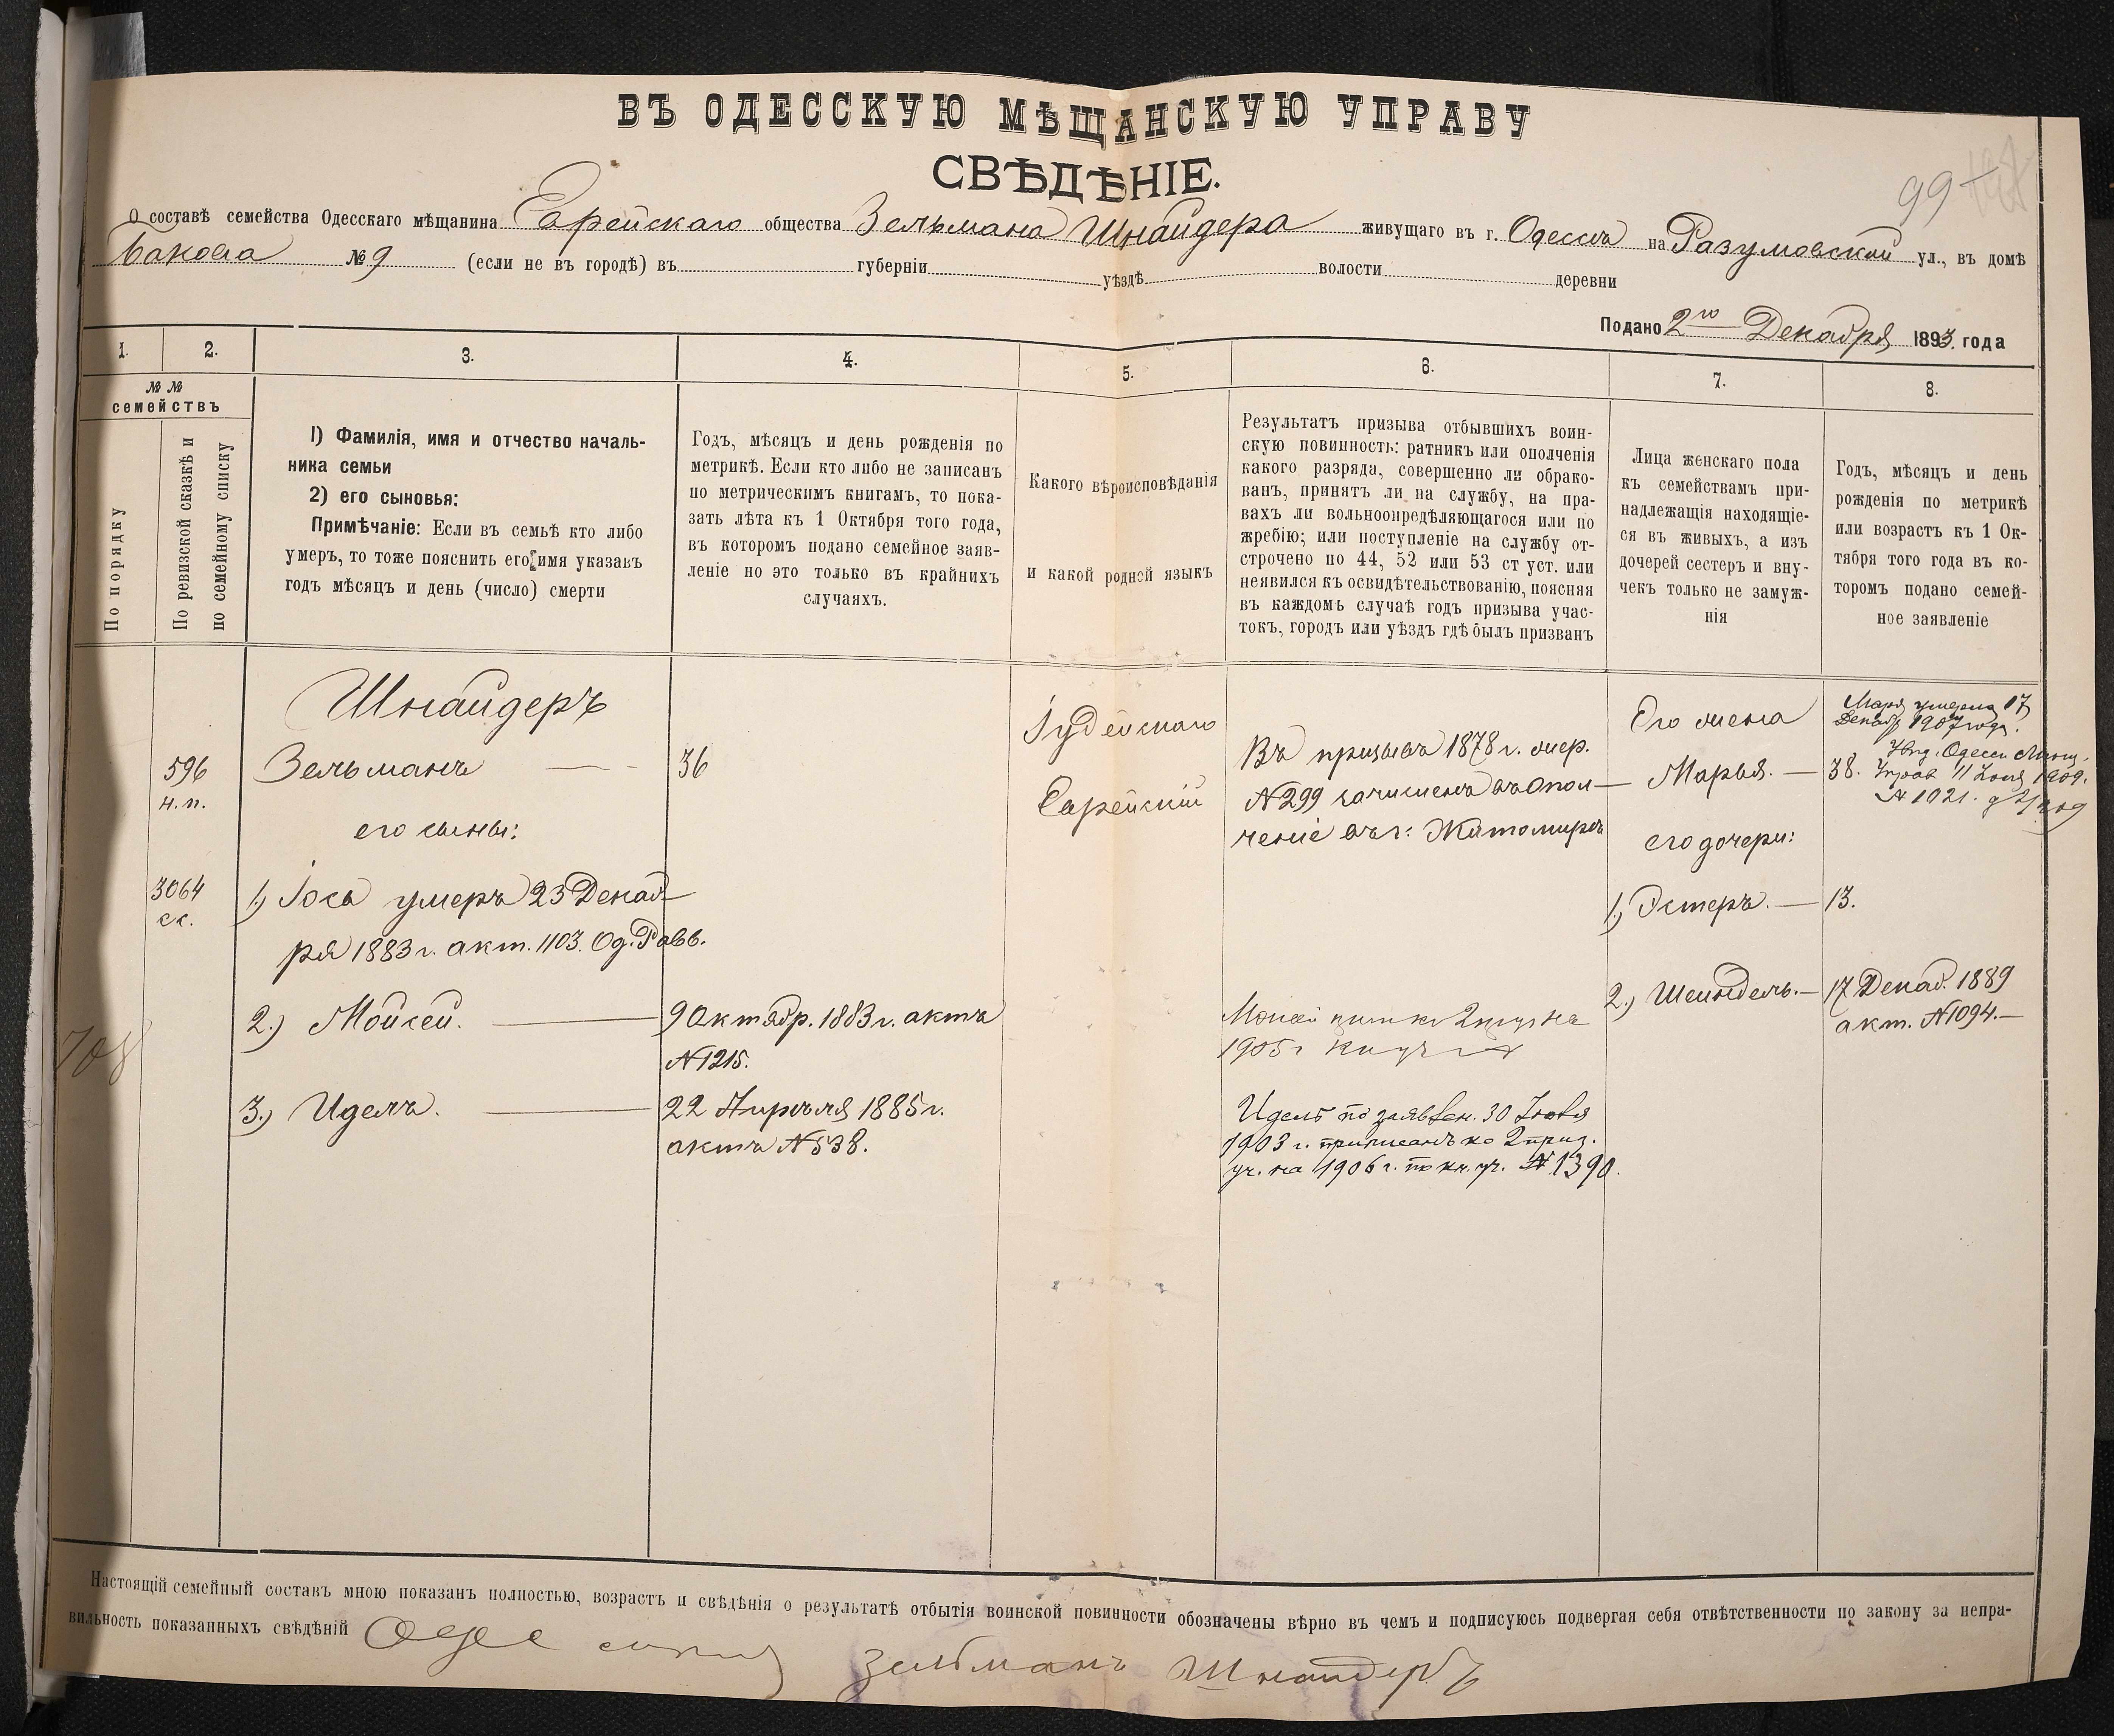 ВЪ ОДЕССКУЮ МѢЩАНСКУЮ УПРАВУ
СВѢДѢНІЕ.
99
О составѣ семейства Одесскаго мѣщанина Еврейскаго общества Зельмана Шнайдера живущаго въ г. Одессѣ на Разумовской ул., въ домѣ
Бакова №9 (если не въ городѣ) въ губерніи уѣздѣ волости деревни
Подано 2го Декабря 1893. года
1. 2. 3. 4. 5. 6. 7. 8.
№ №
семействъ
По порядку
По ревизской сказкѣ и
по семейному списку
1) Фамилія, имя и отчество началь-
ника семьи
2) его сыновья:
Примѣчаніе: Если въ семьѣ кто либо
умеръ, то тоже пояснить его имя указавъ
годъ мѣсяцъ и день (число) смерти
Годъ, мѣсяцъ и день рожденія по
метрикѣ. Если кто либо не записанъ
по метрическимъ книгамъ, то пока-
зать лѣта къ 1 Октября того года,
въ которомъ подано семейное заяв-
леніе но это только въ крайнихъ
случаяхъ.
Какого вѣроисповѣданія
и какой родной языкъ
Результатъ призыва отбывшихъ воин-
скую повинность: ратникъ или ополченія
какого разряда, совершенно ли обрако-
ванъ, принятъ ли на службу, на пра-
вахъ ли вольноопредѣляющагося или по
жребію; или поступленіе на службу от-
строчено по 44, 52 или 53 ст уст. или
неявился къ освидѣтельствованію, поясняя
въ каждомъ случаѣ годъ призыва учас-
токъ, городъ или уѣздъ гдѣ былъ призванъ
Лица женскаго пола
къ семействамъ при-
надлежащія находящіе-
ся въ живыхъ, а изъ
дочерей сестеръ и вну-
чекъ только не замуж-
нія
Годъ, мѣсяцъ и день
рожденія по метрикѣ
или возрастъ къ 1 Ок-
тября того года въ ко-
торомъ подано семей-
ное заявленіе
596
н.п.
3064
сс.
708
Шнайдеръ
Зельманъ
его сыны:
1.) Іось умеръ 23 Декаб-
ря 1883 г. акт. 1103. Од. Равв.
2.) Мойсей.
3.) Идель.
36
9 Октябр. 1883 г. актъ
№1215.
22 Апрѣля 1885 г.
актъ №538.
Іудейскаго
Еврейскій
Въ призывѣ 1878 г. жер.
№299 зачисленъ въ опол-
ченіе въ г: Житомирѣ
Мойсей 2
1905 г
Идель по заявлен. 30 Іюля
1903 г. приписанъ ко 2 приз.
уч. на 1906 г. по кн. уч. №1390.
Его жена
Марья.
его дочери:
1.) Эстеръ.
2.) Шейндель.
Марья умерла 17
Декабр 1907 года.
Увѣд. Одесск Мѣщ.
Управ 11 Іюля 1909.
№1021.
38.
13.
17 Декаб. 1889
акт. №1094.
Настоящій семейный составъ мною показанъ полностью, возрастъ и свѣдѣнія о результатѣ отбытія воинской повинности обозначены вѣрно въ чемъ и подписуюсь подвергая себя отвѣтственности по закону за непра-
вильность показанныхъ свѣдѣній
Зельманъ Шнайдеръ